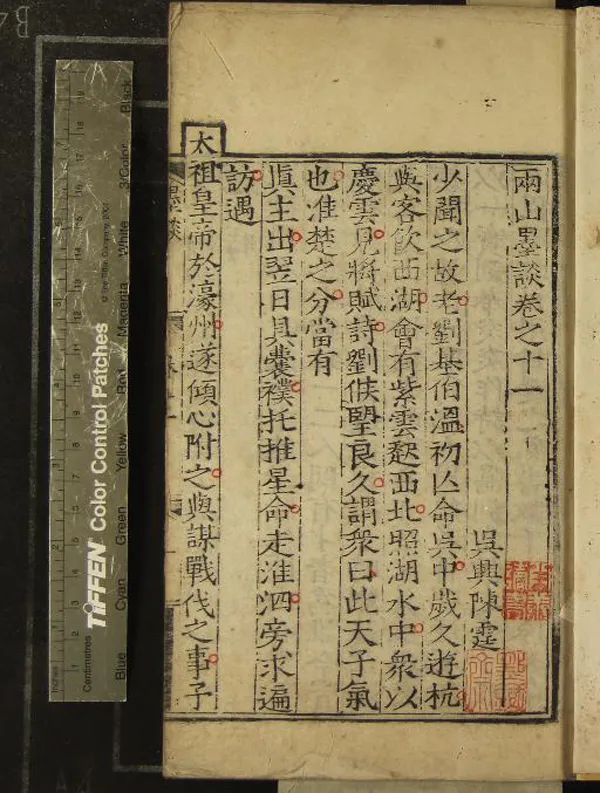 兩山墨談卷之十一
吳興陳霆
少聞之故老劉基伯溫初亾命吳中歲久遊杭
與客飲西湖會有紫雲起西北照湖水中衆以
慶雲見將賦詩劉候望良久謂衆曰此天子氣
也淮楚之分當有
眞主出翌日具囊襆托推星命走淮泗旁求遍
訪遇
太祖皇帝於濠州遂傾心附之與謀戰伐之事子
墨談
TIFFEN Color Control Patches
© The Tiffen Company, 2007
Inches
Centimetres
Blue Cyan Green Yellow Red Magenta White 3/Color Black